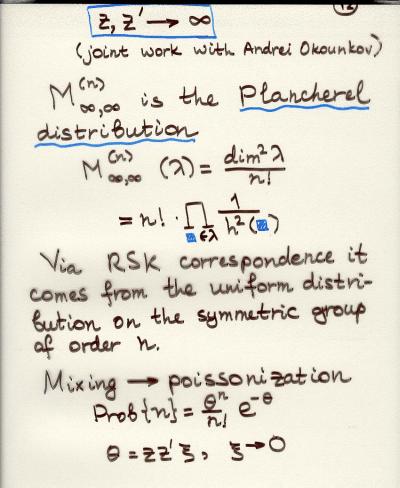 12
z, z' → ∞
(joint work with Andrei Okounkov)
M^{(n)}_{∞,∞} is the Plancherel
distribution
M^{(n)}_{∞,∞} (λ) = dim²λ / n!
= n! · ∏_{■∈λ} 1 / h²(■)
Via RSK correspondence it
comes from the uniform distri-
bution on the symmetric group
of order n.
Mixing → poissonization
Prob{n} = θⁿ/n! e^{-θ}
θ = zz'ξ, ξ → 0